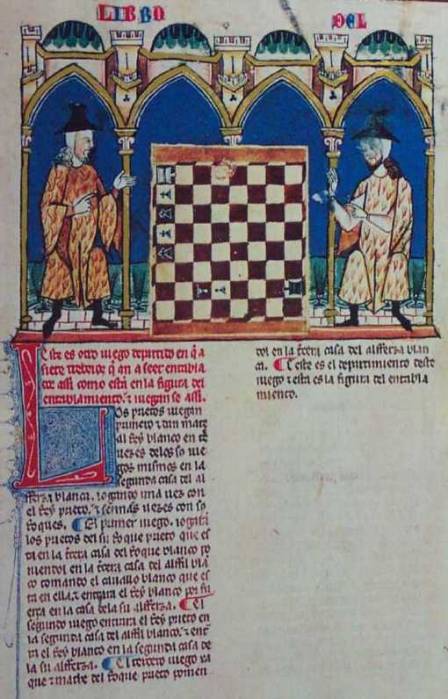 LIBRO DEL
Este es otro iuego departido en q̃ a
siete trebeios q̃ an a seer entabla
dos assi como esta en la figura del
entablamiento. ⁊ iuegan se assi.
Los prietos iuegan
primero ⁊ dan mate
al Rey blanco en
uezes delos so iue
gos mismos en la
segunda casa del al
fferza blanca. iogando una uez con
el Rey prieto. ⁊ uezes con so
Roques. ¶ El primer iuego.
los prietos del su Roque prieto que es
ta en la casa del Roque blanco po
niendol en la casa del alffil blā
co tomando el cauallo blanco que es
ta en ella. ⁊ entrara el Rey blanco
en la casa dela su alfferza. ¶ El
segundo iuego entrara el Rey prieto en
la segunda casa del alffil blanco. ⁊
ra el Rey blanco en la segunda casa de
la su alfferza. ¶ El tercero iuego xa
que ⁊ mathe del Roque prieto ponien
dol en la casa del alfferza blan
ca. ¶ ⁊ este es el departimiento deste
iuego ⁊ esta es la figura del entabla
miento.